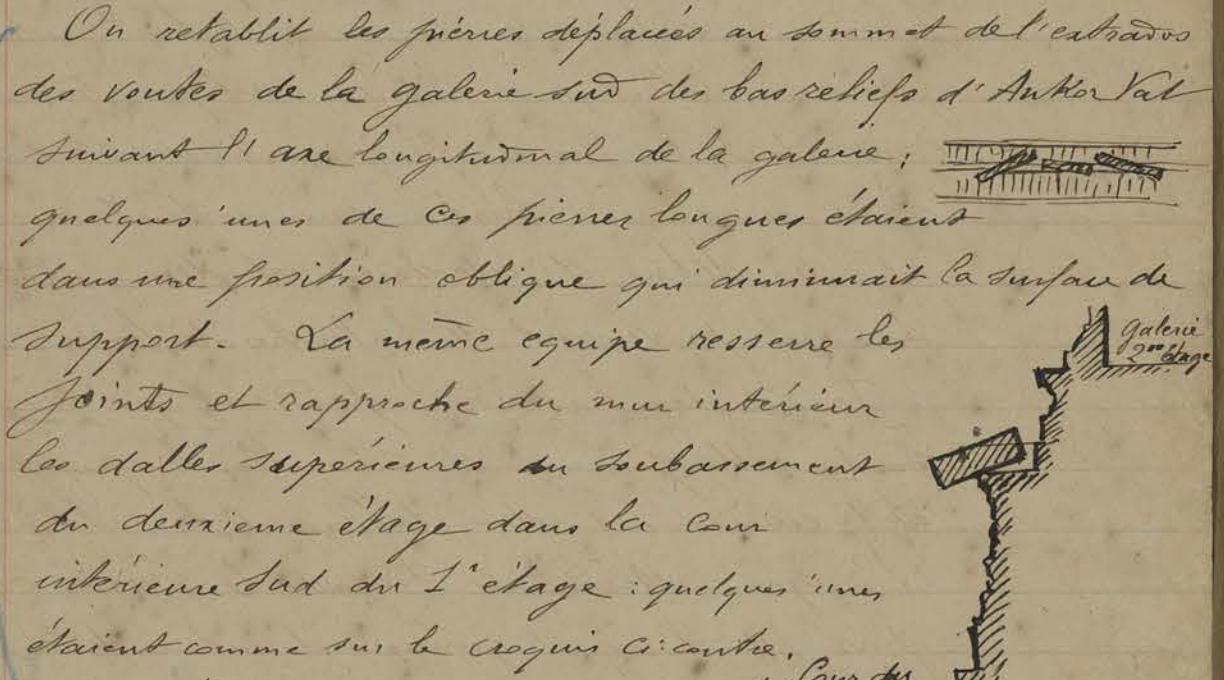 On retablit les piérres déplacées au sommet de l'extrados
des voutes de la galerie sud des bas reliefs d'Ankor Vat
suivant l'axe longitudinal de la galerie ;
quelques'unes de ces pierres longues étaient
dans une position oblique qui diminuait la surface de
support. La même equipe resserre les
joints et rapproche du mur intérieur
les dalles supérieures du soubassement
du deuxieme étage dans la cour
intérieure Sud du 1er étage : quelques'unes
étaient comme sur le croquis ci-contre.
galerie
2me étage
Cour du